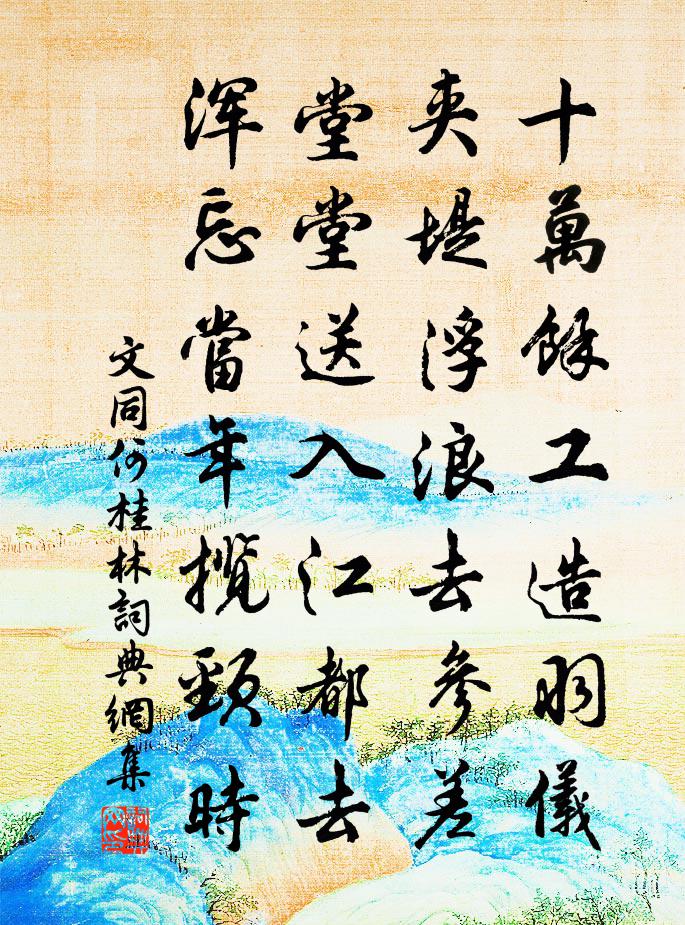 十萬餘工造羽儀
夾堤浮浪去參差
堂堂送入江都去
渾忘當年攬頸時
文同何桂林詞典網集